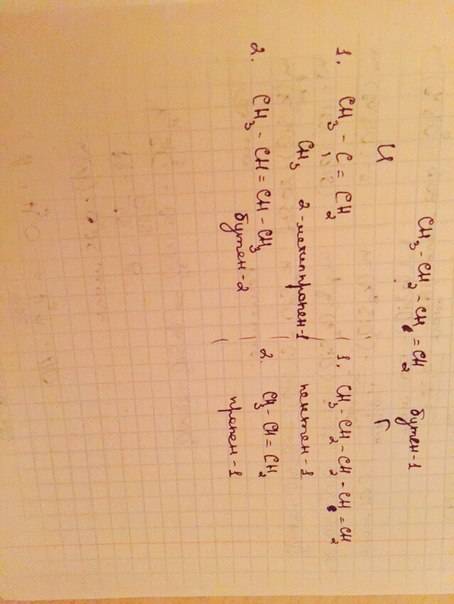 CH₃ - CH₂ - CH = CH₂ бутен-1
И
1. CH₃ - C = CH₂
CH₃
2-метилпропен-1
2. CH₃ - CH = CH - CH₃
бутен-2
Г
1. CH₃ - CH₂ - CH₂ - CH = CH₂
пентен-1
2. CH₃ - CH = CH₂
пропен-1